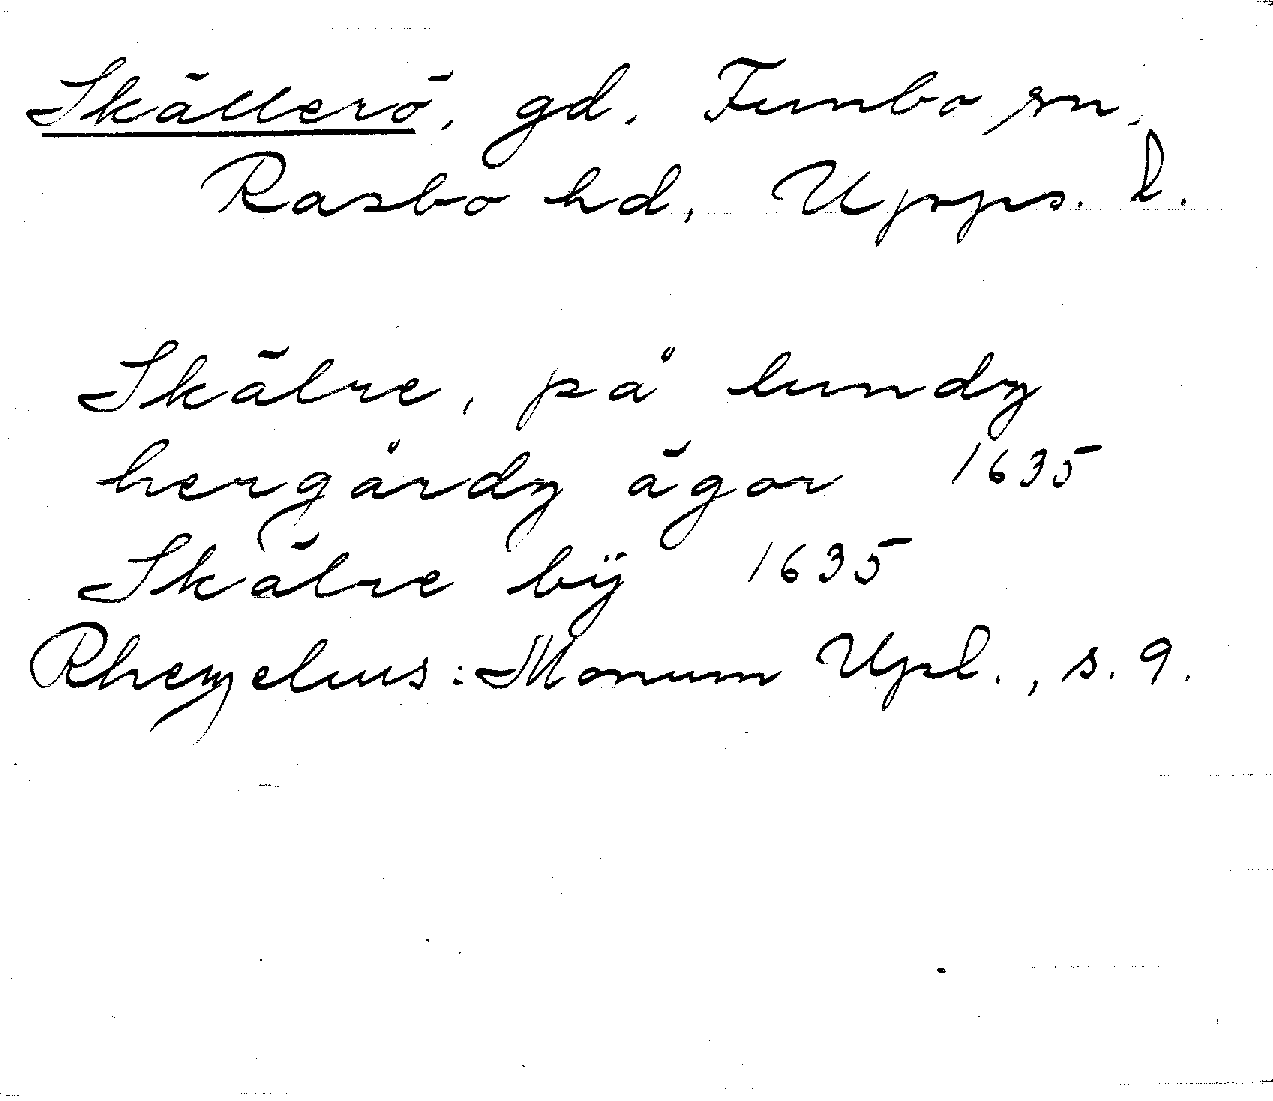 Skällerö, gd. Funbo sn,
Rasbo hd, Upps. l.
Skälre, på lundz
hergårdz ägor 1635
Skälre bÿ 1635
Rhezelius: Monum Upl., s. 9.